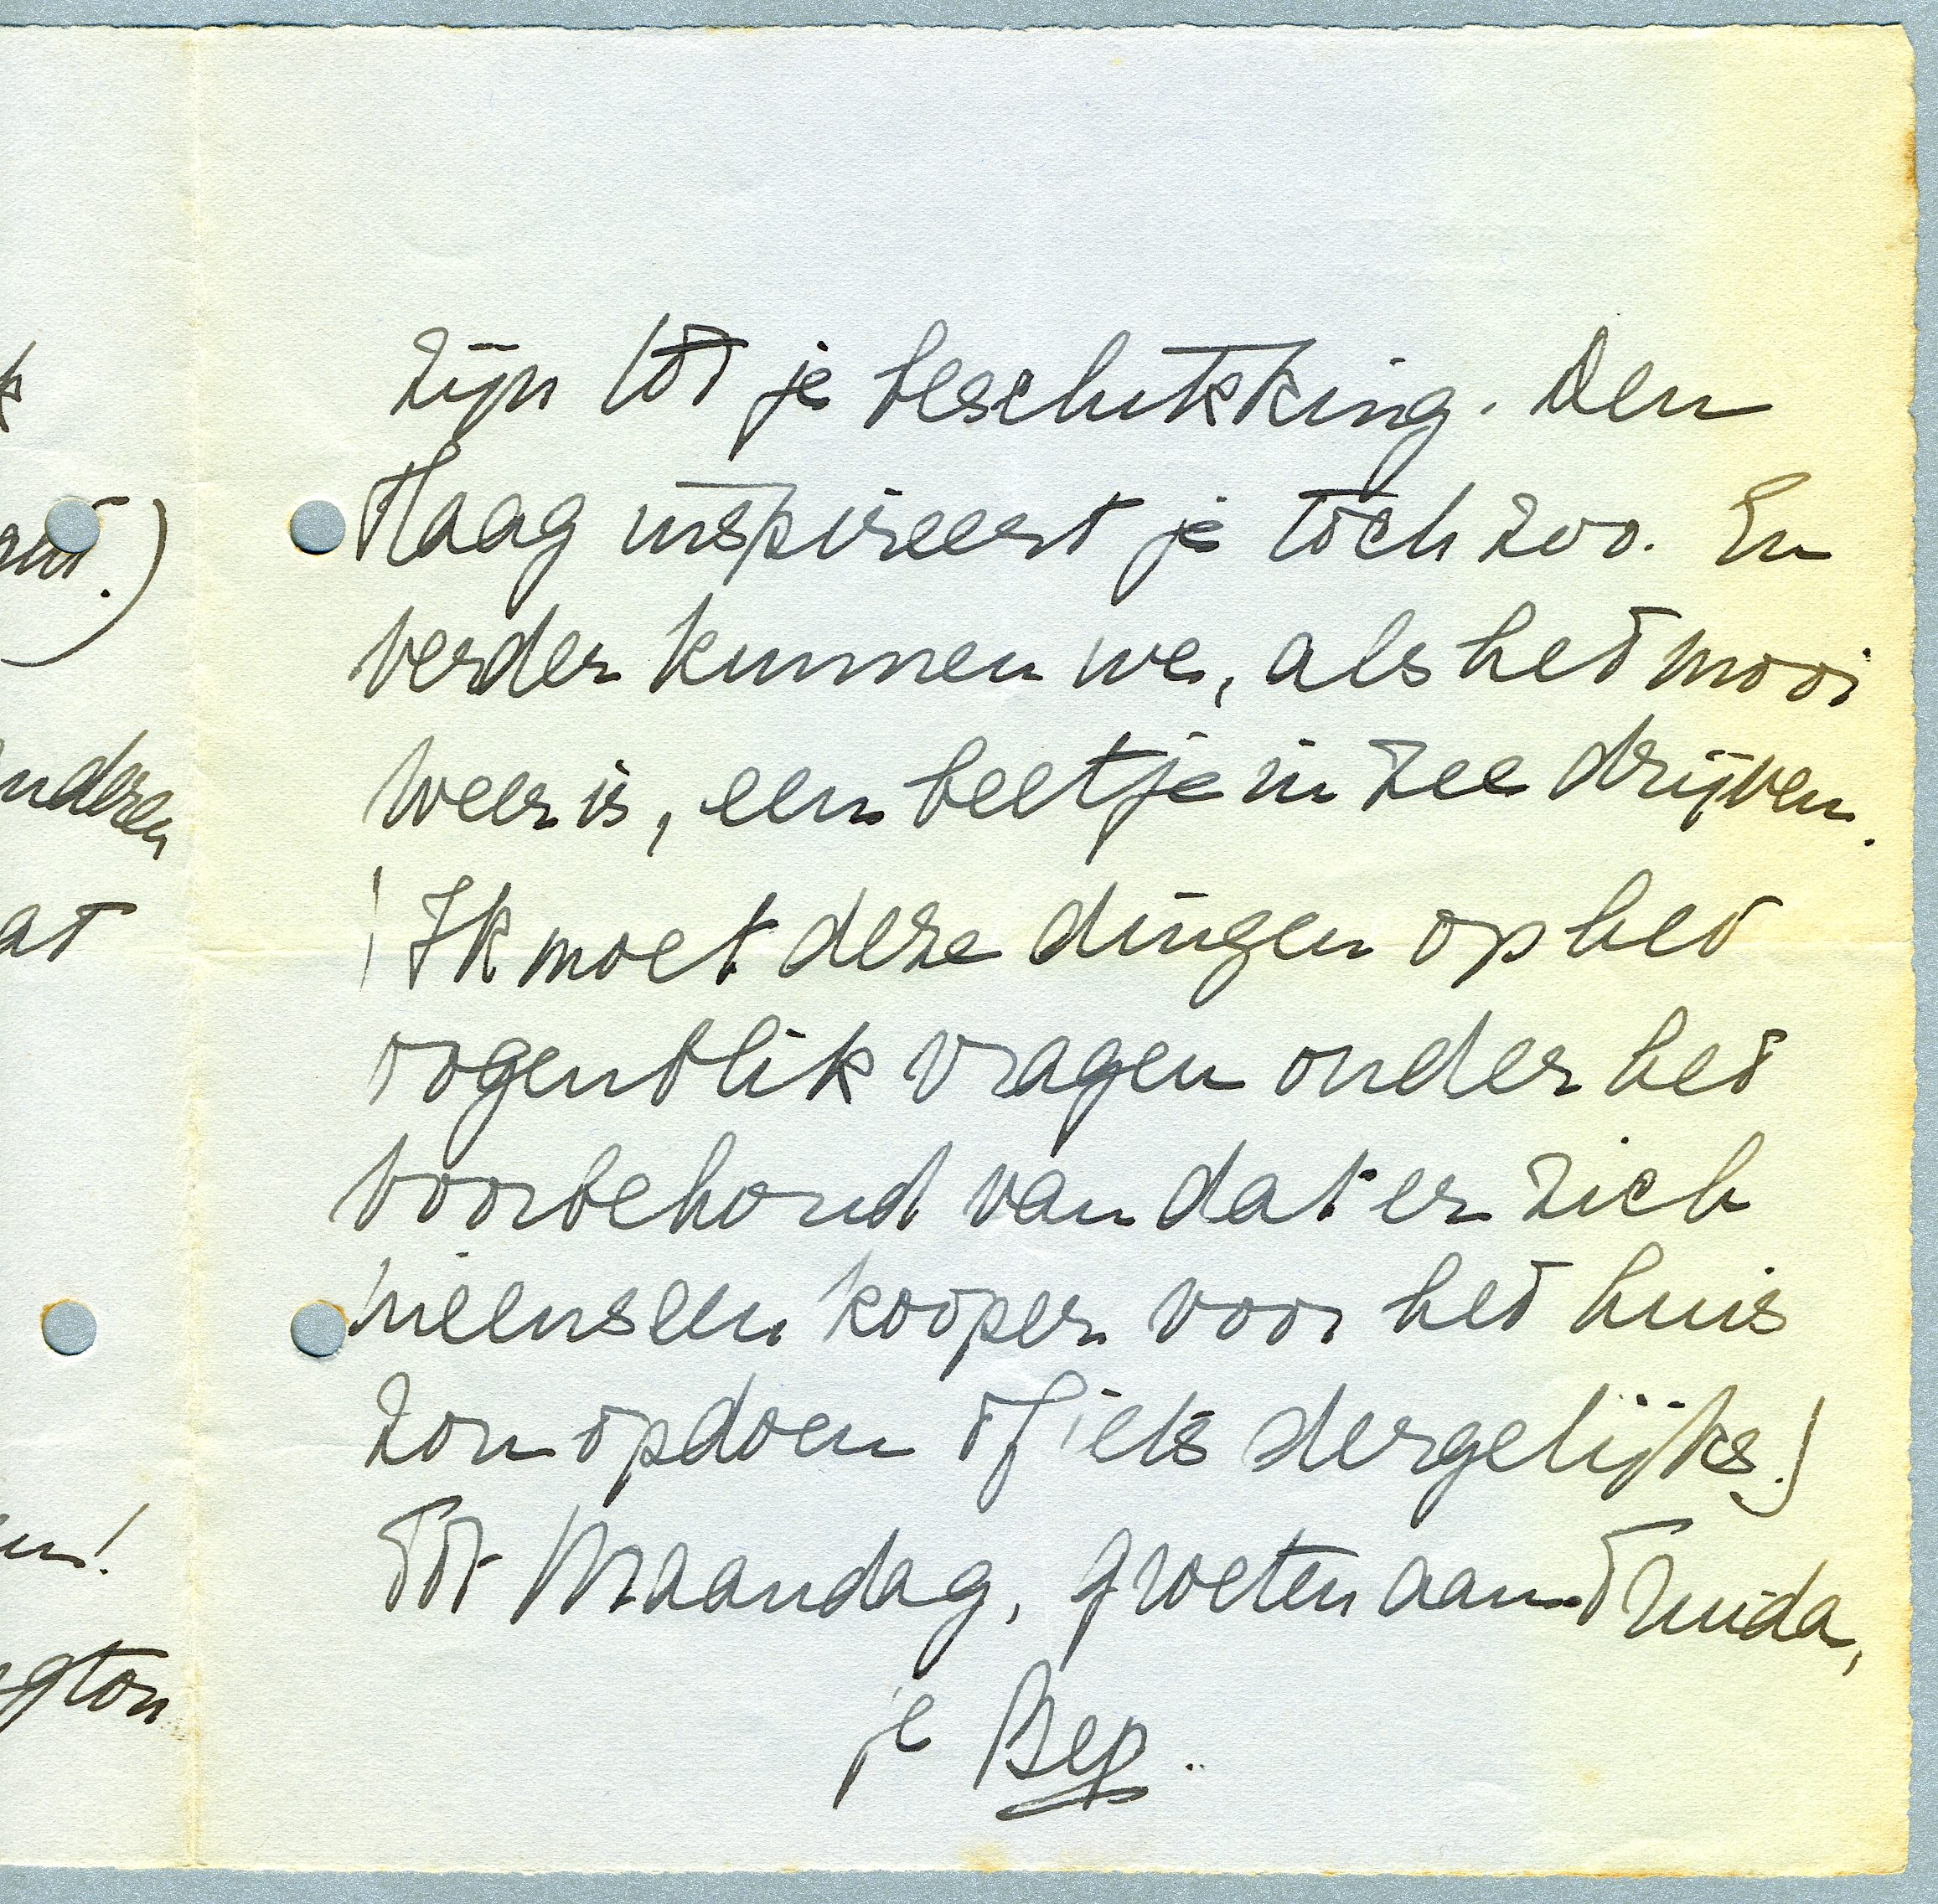 k
ant.)
anderen
at
en!
gton
zijn tot je beschikking. Den
Haag inspireert je toch zoo. En
verder kunnen we, als het mooi
weer is, een beetje in zee drijven.
(Ik moet deze dingen op het
oogenblik vragen onder het
voorbehoud van dat er zich
ineens een kooper voor het huis
zou opdoen of iets dergelijks.)
Tot Maandag, groeten aan Truida,
je Bep.